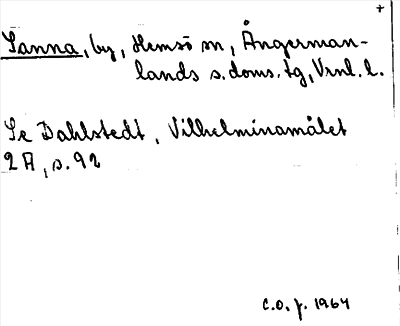 +
Sanna, by, Hemsö sn, Ångerman-
lands s. doms. tg, Vrnl. l.
Se Dahlstedt, Vilhelminamålet
2 A, s. 92
c.o.p. 1964